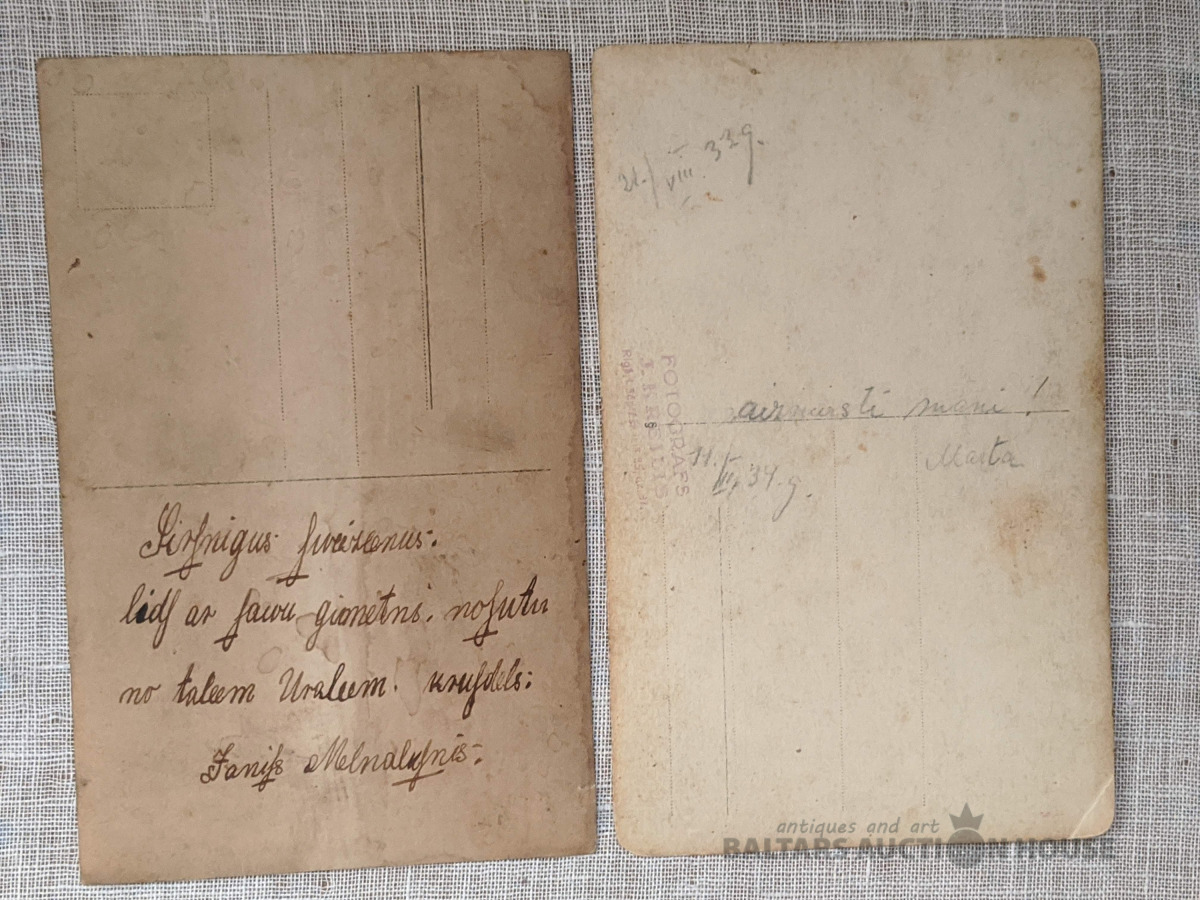 Sirſnigus ſweizenus:
lidſ ar ſawu gimetni. noſutu
no taleem Uraleem. kruſdels:
Janiſs Melnalkſnis:
21./VIII. 33 g.
FOTOGRAFS
aizmirsti mani!
Marta
11./III, 34. g.
antiques and art
BALTARS AUCTION HOUSE